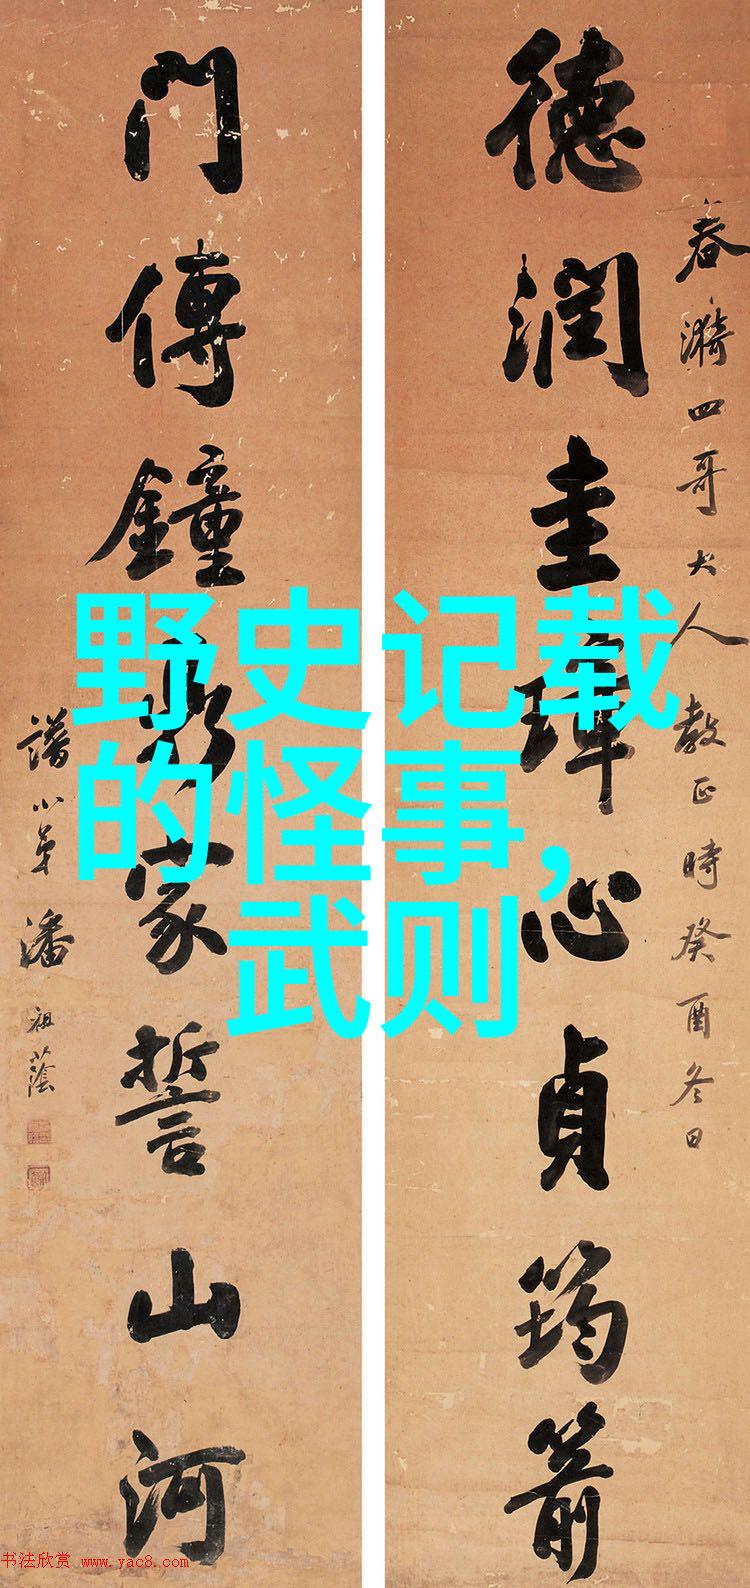 德润圭璋心贞筠箭
春漪四哥大人教正時癸酉冬日
门傳鐘鼎家誓山河
譜小弟潘祖蔭
野史记载
的怪事,
武则
书法欣赏 www.yac8.com